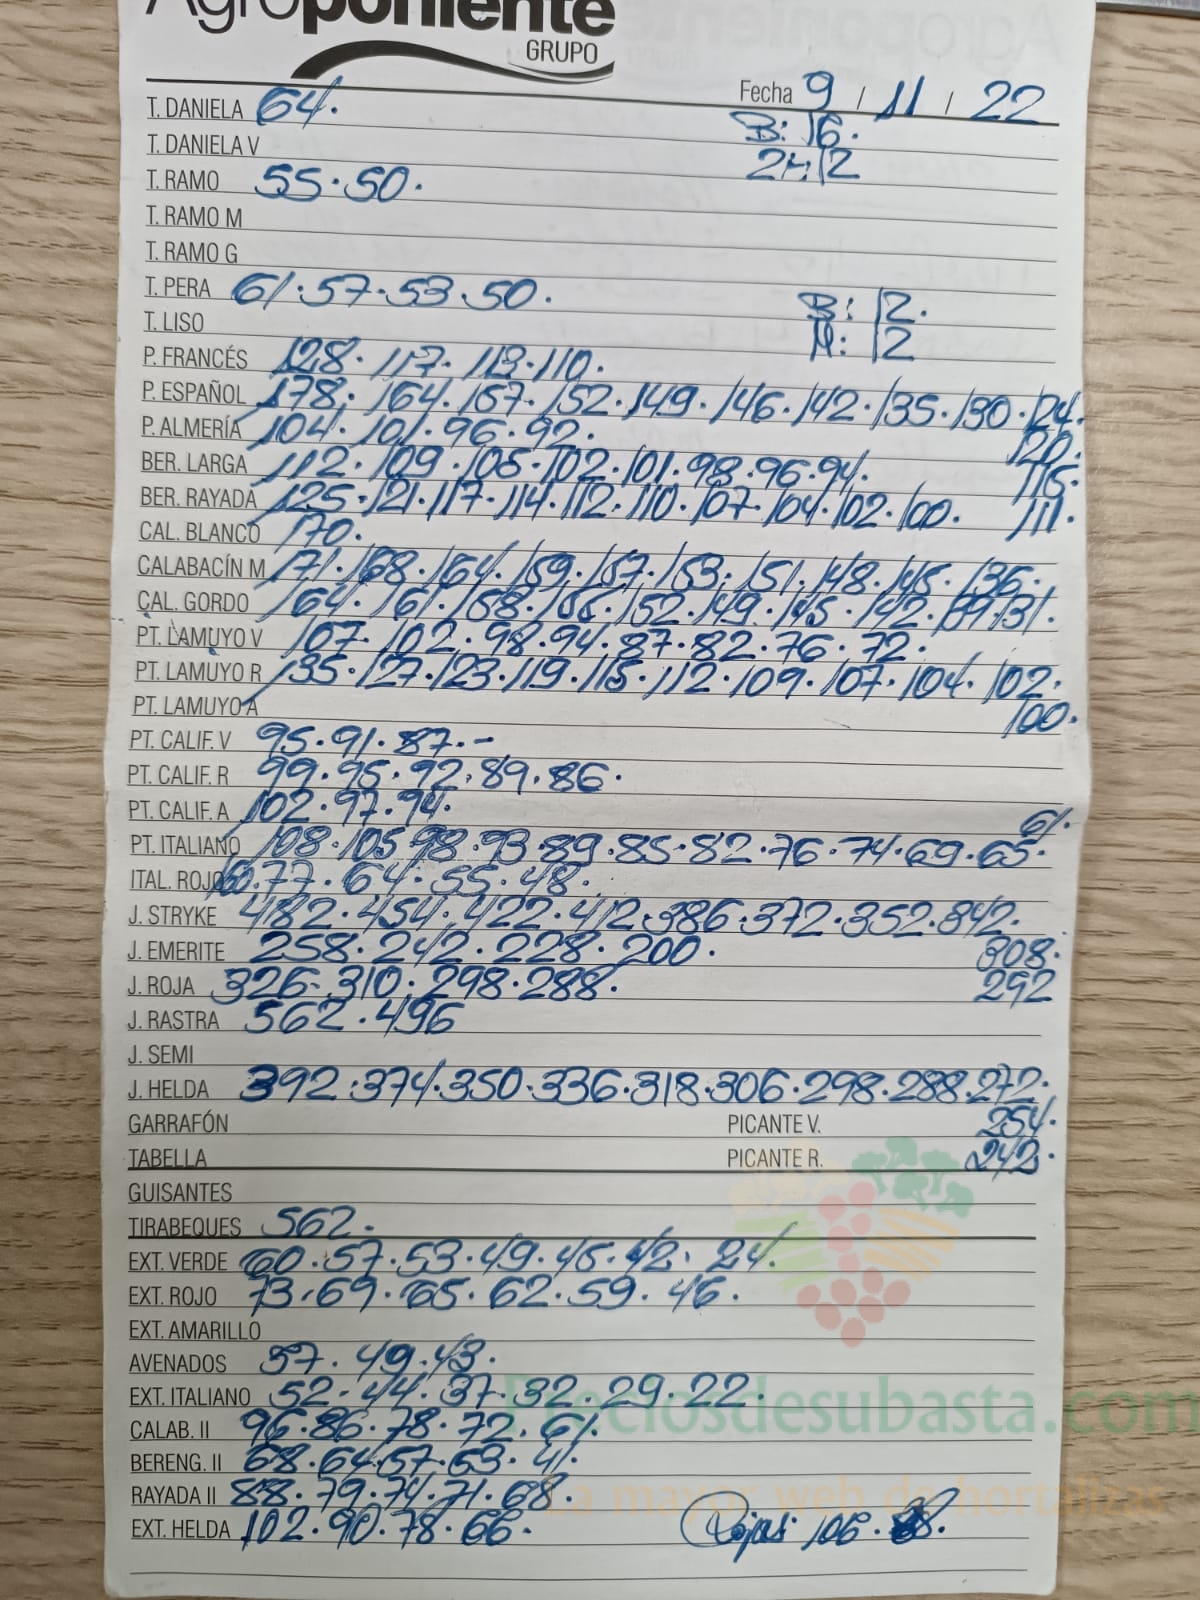 Agroponiente
GRUPO
Fecha 9 / 11 / 22
T. DANIELA 64. B: 16.
T. DANIELA V 2ª: 12
T. RAMO 55. 50.
T. RAMO M
T. RAMO G
T. PERA 61. 57. 53. 50. B: 12.
T. LISO N: 12
P. FRANCÉS 128. 117. 113. 110.
P. ESPAÑOL 178. 164. 157. 152. 149. 146. 142. 135. 130. 124.
P. ALMERÍA 104. 101. 96. 92. 120.
BER. LARGA 112. 109. 105. 102. 101. 98. 96. 94. 115.
BER. RAYADA 125. 121. 117. 114. 112. 110. 107. 104. 102. 100. 111.
CAL. BLANCO 170.
CALABACÍN M 171. 168. 164. 159. 157. 153. 151. 148. 145. 136.
CAL. GORDO 164. 161. 158. 155. 152. 149. 145. 142. 131.
PT. LAMUYO V 107. 102. 98. 94. 87. 82. 76. 72.
PT. LAMUYO R 135. 127. 123. 119. 115. 112. 109. 107. 104. 102.
PT. LAMUYO A 100.
PT. CALIF. V 95. 91. 87. -
PT. CALIF. R 99. 95. 92. 89. 86.
PT. CALIF. A 102. 97. 94. 61.
PT. ITALIANO 108. 105. 98. 93. 89. 85. 82. 76. 74. 69. 65.
ITAL. ROJO 77. 64. 55. 48.
J. STRYKE 482. 454. 422. 412. 386. 372. 352. 342.
J. EMERITE 258. 242. 228. 200. 308.
J. ROJA 326. 310. 298. 288. 292
J. RASTRA 562. 496
J. SEMI
J. HELDA 392. 374. 350. 336. 318. 306. 298. 288. 272.
GARRAFÓN PICANTE V. 254.
TABELLA PICANTE R. 242.
GUISANTES
TIRABEQUES 562.
EXT. VERDE 60. 57. 53. 49. 45. 42. 24.
EXT. ROJO 73. 69. 65. 62. 59. 46.
EXT. AMARILLO
AVENADOS 57. 49. 43.
EXT. ITALIANO 52. 44. 37. 32. 29. 22.
Preciosdesubasta.com
CALAB. II 96. 86. 78. 72. 61.
BERENG. II 68. 64. 57. 53. 41.
RAYADA II 88. 79. 74. 71. 68.
La mayor web de hortalizas
EXT. HELDA 102. 90. 78. 66. Rojas: 106.